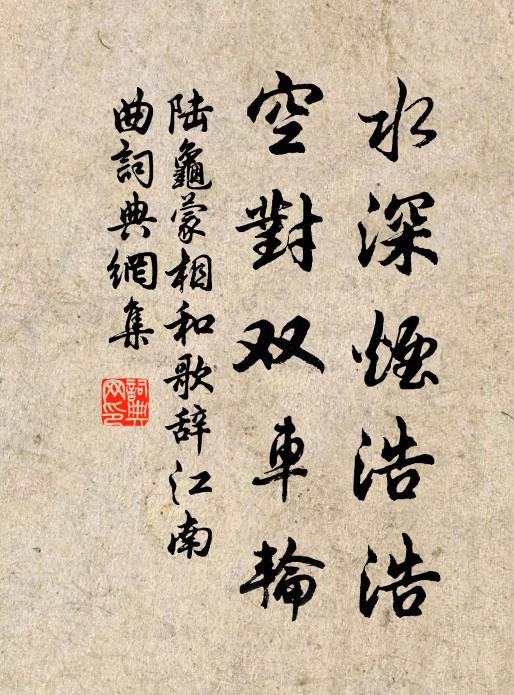 水深煙浩浩
空對双車輪
陆龜蒙相和歌辞江南
曲詞典網集
詞典网印